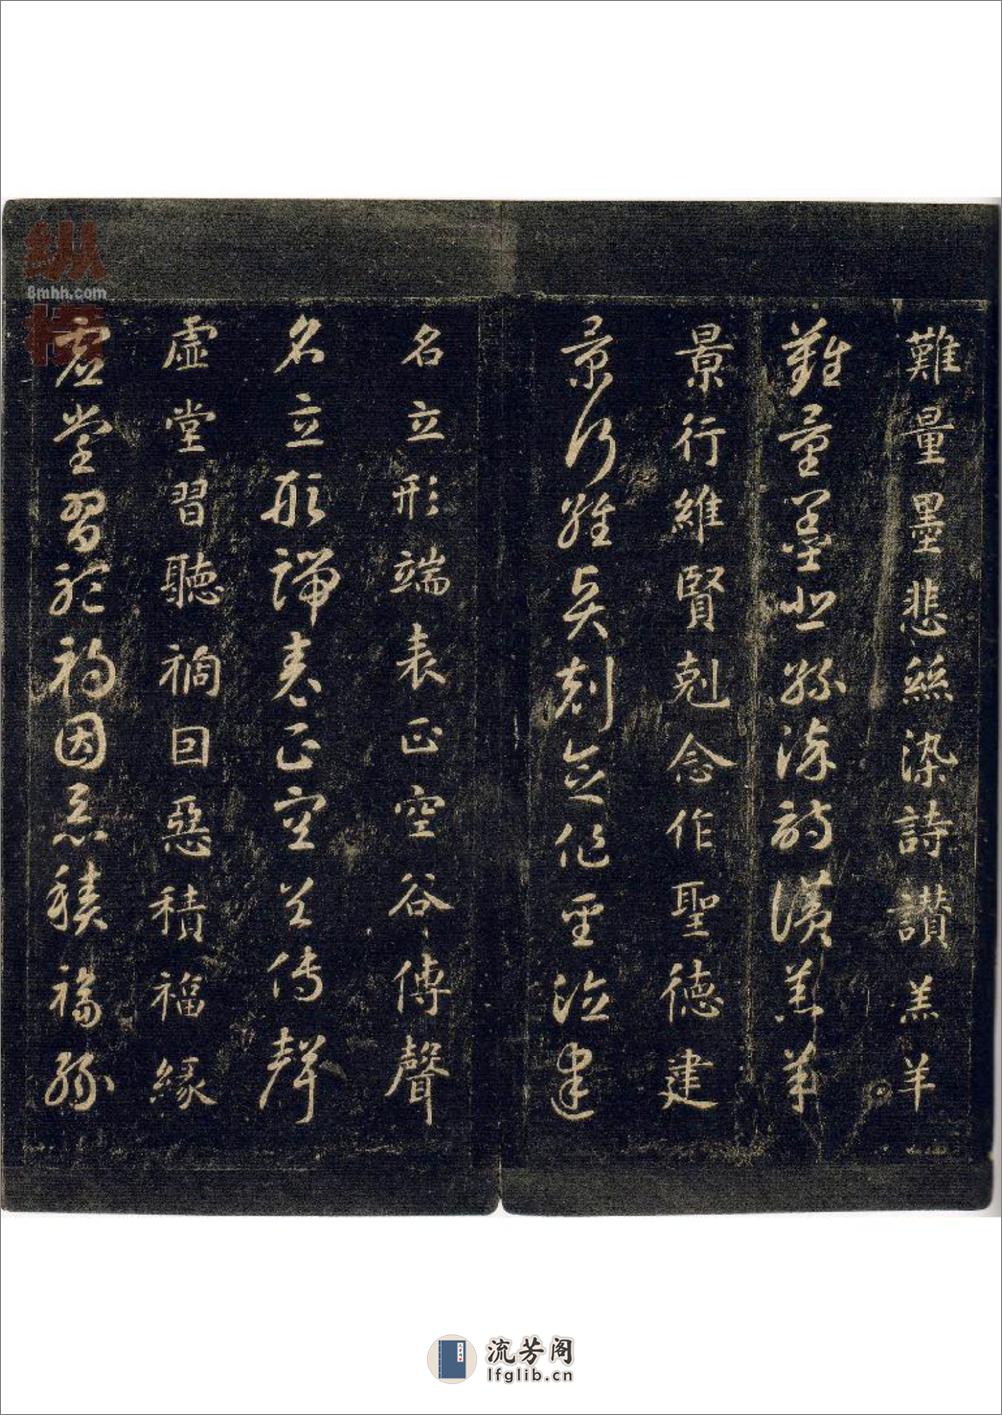 難量墨悲絲染詩讃羔羊
難量墨悲絲染詩讃羔羊
景行維賢剋念作聖德建
景行維賢剋念作聖德建
名立形端表正空谷傅聲
名立形端表正空谷傳聲
虛堂習聽禍因惡積福緣
虛堂習聽禍因惡積福緣
纵横
8mhh.com
流芳阁
lfglib.cn